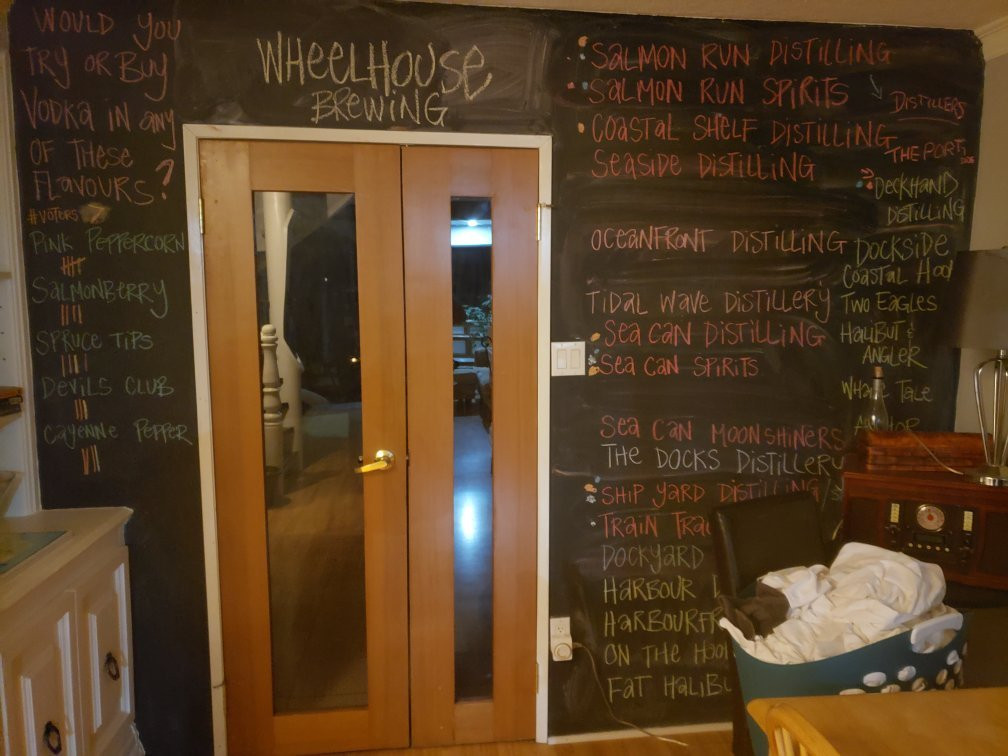 WOULD YOU
TRY OR BUY
VODKA IN ANY
OF THESE
FLAVOURS?
#VOTERS
PINK PEPPERCORN
SALMONBERRY
SPRUCE TIPS
DEVILS CLUB
CAYENNE PEPPER
WHEELHOUSE
BREWING
SALMON RUN DISTILLING
SALMON RUN SPIRITS
COASTAL SHELF DISTILLING
SEASIDE DISTILLING
OCEANFRONT DISTILLING
TIDAL WAVE DISTILLERY
SEA CAN DISTILLING
SEA CAN SPIRITS
SEA CAN MOONSHINERS
THE DOCKS DISTILLERY
SHIP YARD DISTILLING
TRAIN
DOCKYARD
HARBOUR
ON THE
FAT
DISTILLERS
THE PORT
DECKHAND
DISTILLING
DOCKSIDE
COASTAL
TWO EAGLES
HALIBUT &
ANGLER
WHALE TALE